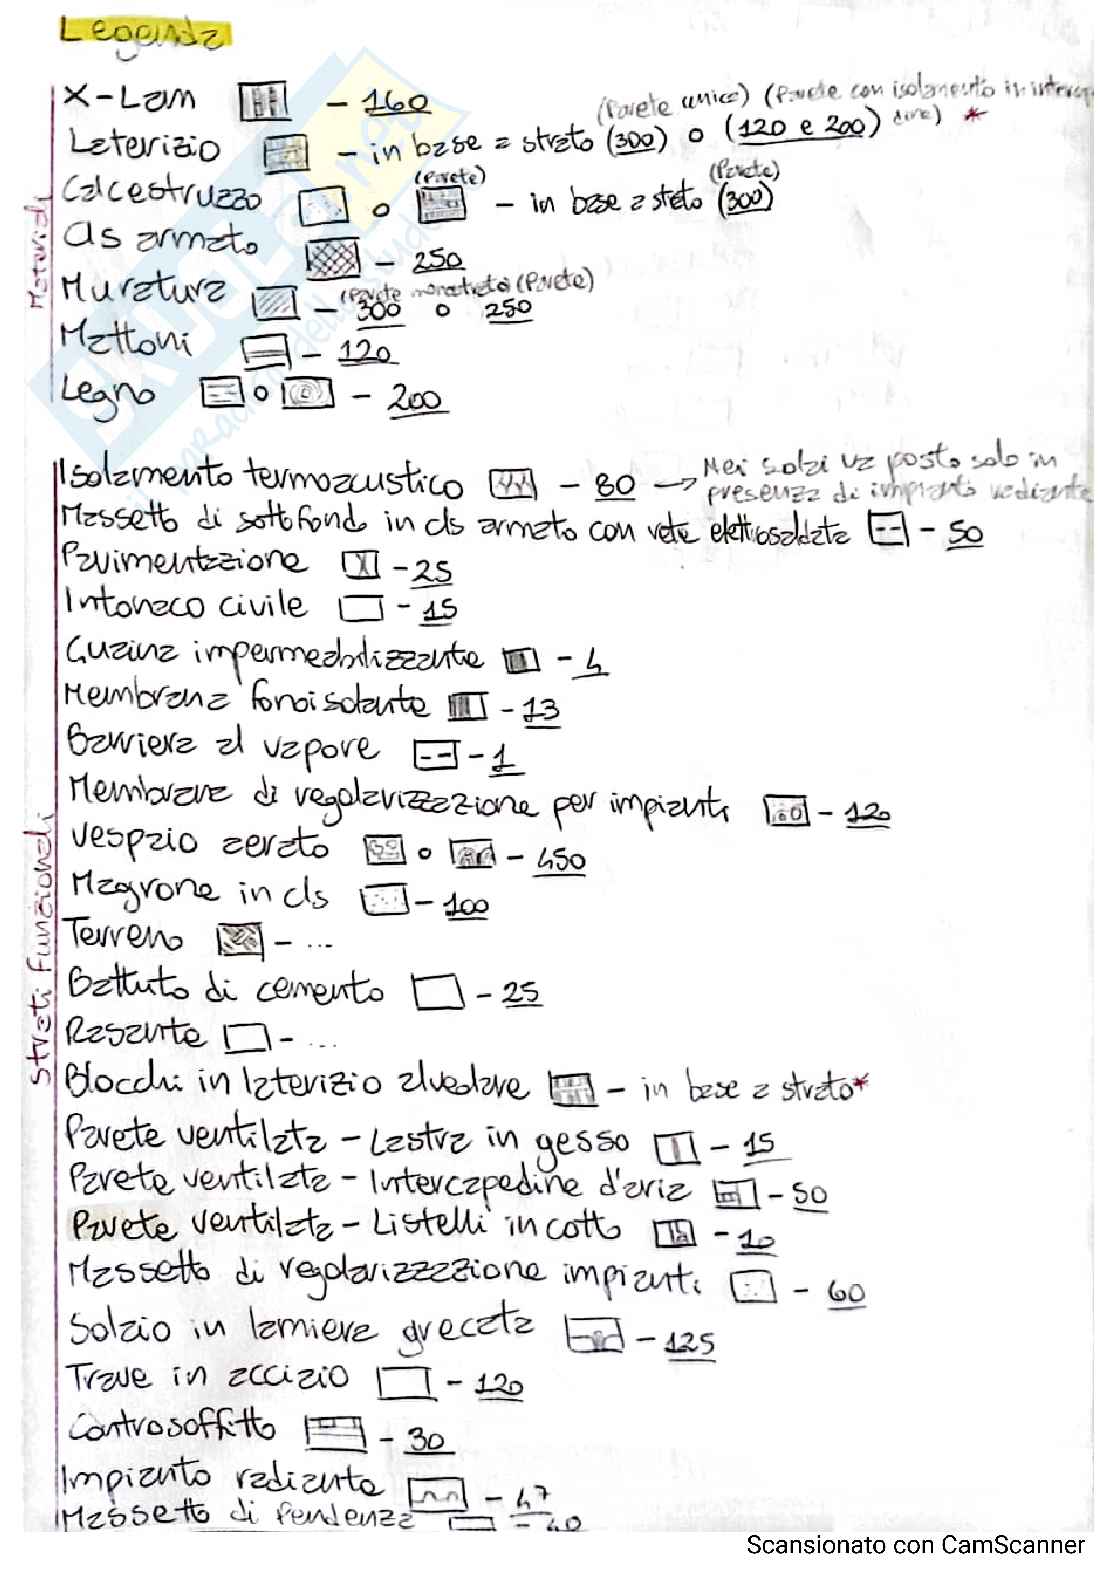 Legenda
Materiali
X-Lam - 160
(Parete unica) (Parete con isolamento in interca
Laterizio - in base a strato (300) o (120 e 200) dine) *
Calcestruzzo o (Parete) - in base a strato (300) (Parete)
cls armato - 250
Muratura - 300 o 250 (Parete monostrato) (Parete)
Mattoni - 120
Legno o - 200
Strati funzionali
Isolamento termoacustico - 80 → Nei solai va posto solo in
presenza di impianti radiante
Massetto di sottofondo in cls armato con rete elettrosaldata - 50
Pavimentazione - 25
Intonaco civile - 15
Guaina impermeabilizzante - 4
Membrana fonoisolante - 13
Barriera al vapore - 1
Membrana di regolarizzazione per impianti - 120
Vespaio aerato o - 450
Magrone in cls - 100
Terreno - ...
Battuto di cemento - 25
Rasante - ...
Blocchi in laterizio alveolare - in base a strato*
Parete ventilata - Lastra in gesso - 15
Parete ventilata - Intercapedine d'aria - 50
Parete ventilata - Listelli in cotto - 10
Massetto di regolarizzazione impianti - 60
Solaio in lamiera grecata - 125
Trave in acciaio - 120
Controsoffitto - 30
Impianto radiante - 47
Massetto di pendenza - 40
Scansionato con CamScanner